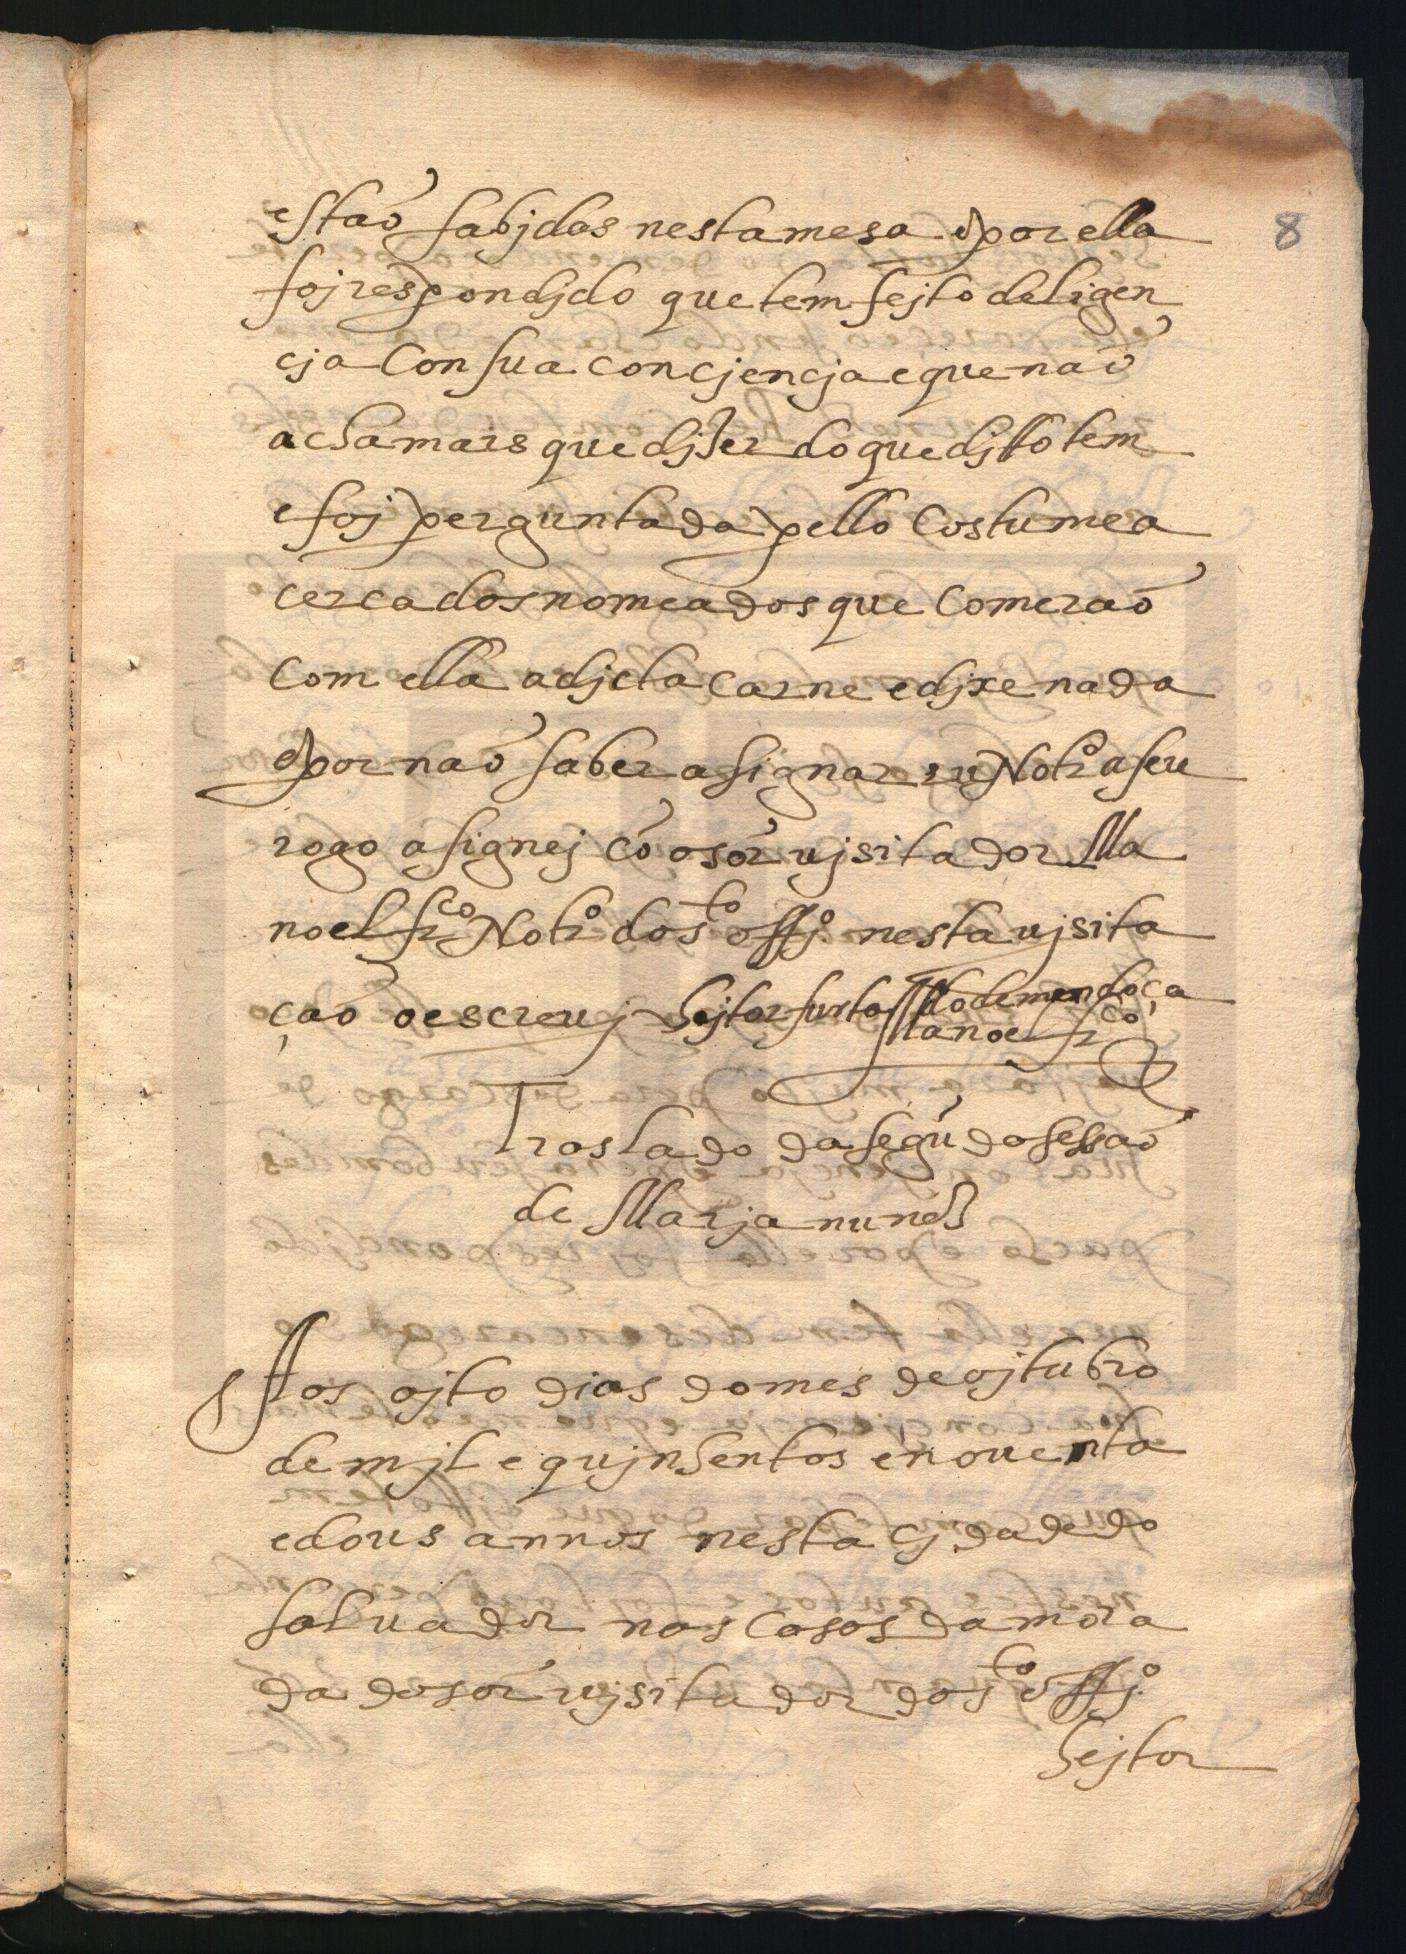 8
estaõ sabjdas nesta mesa e por ella
foj respondjdo que tem fejto deligen
cja Con sua concjencja e que naõ
acha mais que djzer do que djtto tem
e foj perguntada pello Costume a
cerca dos nomeados que Comeraõ
Com ella a djcta Carne e djxe nada
e por naõ saber asignar eu Notrº a seu
rogo asignej cõ o sõr vjsitador Ma
noel frco Notrº do sto offjº nesta vjsita
çaõ o escreuj Hejtor furtado de mendoça
Manoel frco
Traslado da segũda sessaõ
de Marja nunez
Aos ojto dias do mes de ojtubro
de mjl e qujnhentos e nouenta
e dous annos nesta Cjdade do
saluador nas Casas da mora
da do sõr vjsitador do sto offjº
Hejtor